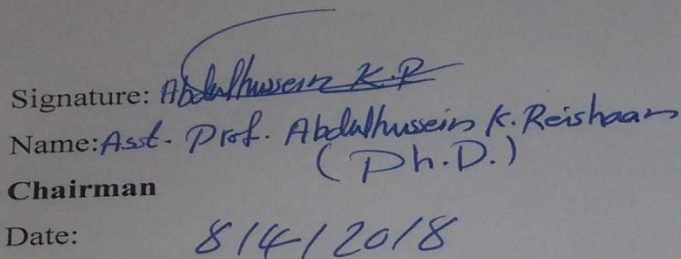 Signature: Abdulhussein K.R
Name: Asst. Prof. Abdulhussein K. Reishaan
(Ph.D.)
Chairman
Date: 8/4/2018